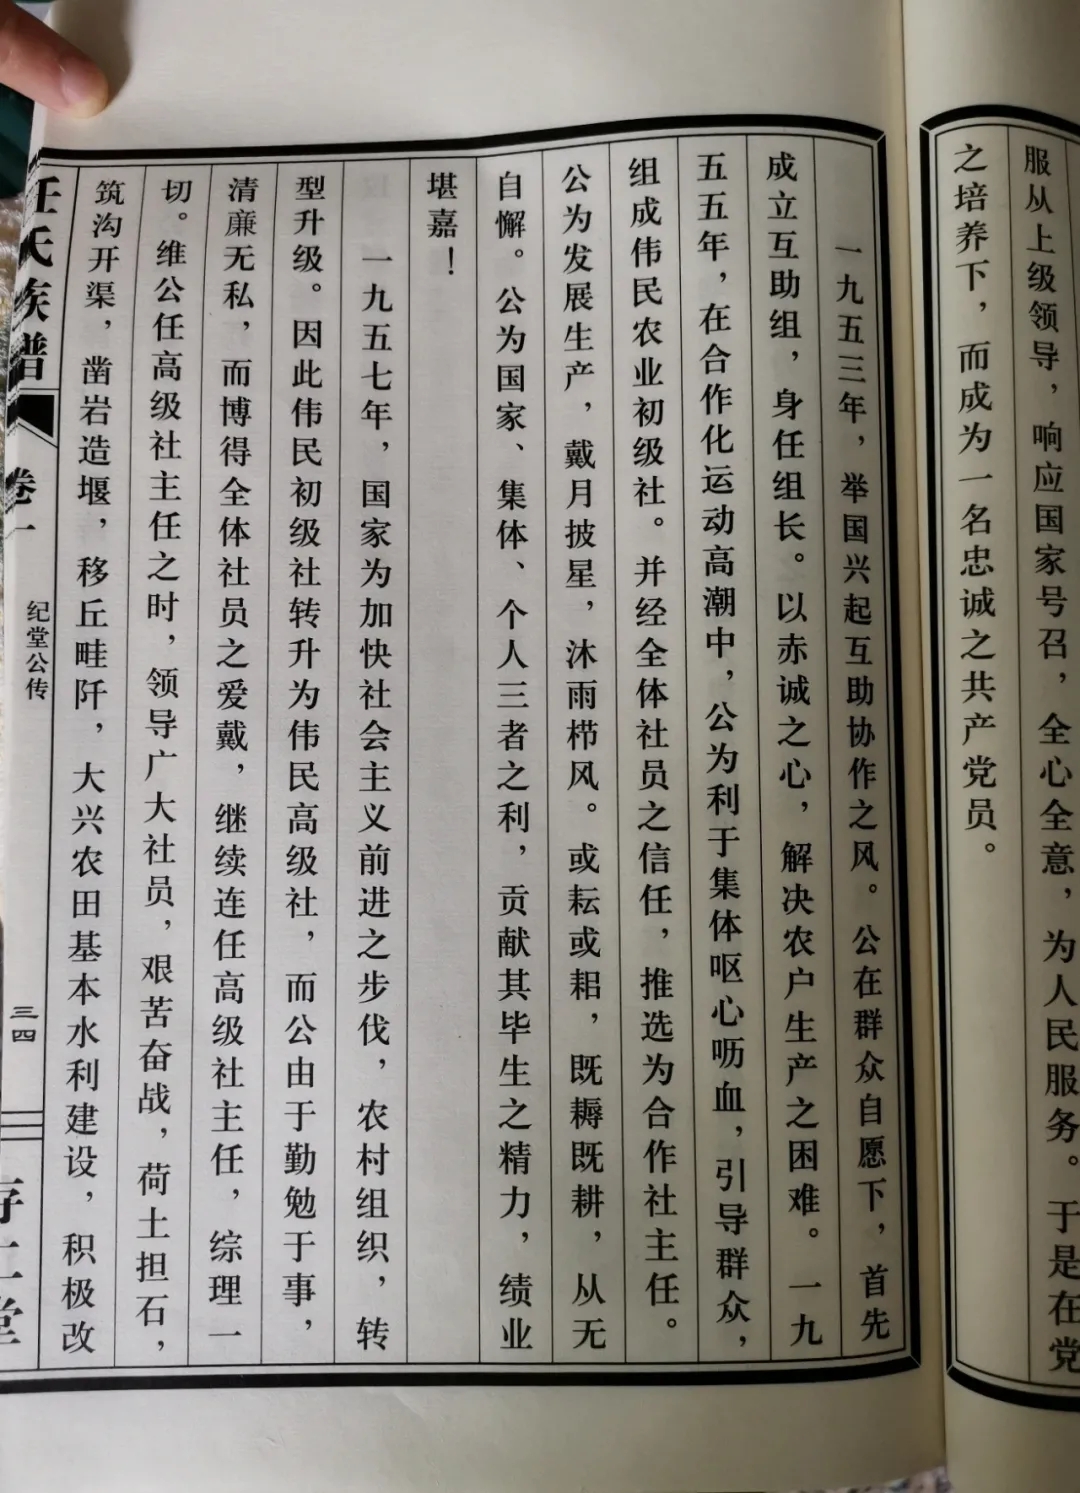 服从上级领导，响应国家号召，全心全意，为人民服务。于是在党
之培养下，而成为一名忠诚之共产党员。
一九五三年，举国兴起互助协作之风。公在群众自愿下，首先
成立互助组，身任组长。以赤诚之心，解决农户生产之困难。一九
五五年，在合作化运动高潮中，公为利于集体呕心呖血，引导群众，
组成伟民农业初级社。并经全体社员之信任，推选为合作社主任。
公为发展生产，戴月披星，沐雨栉风。或耘或耜，既耨既耕，从无
自懈。公为国家、集体、个人三者之利，贡献其毕生之精力，绩业
堪嘉！
一九五七年，国家为加快社会主义前进之步伐，农村组织，转
型升级。因此伟民初级社转升为伟民高级社，而公由于勤勉于事，
清廉无私，而博得全体社员之爱戴，继续连任高级社主任，综理一
切。维公任高级社主任之时，领导广大社员，艰苦奋战，荷土担石，
筑沟开渠，凿岩造堰，移丘畦阡，大兴农田基本水利建设，积极改
任氏族谱
卷一
纪堂公传
三四
堂